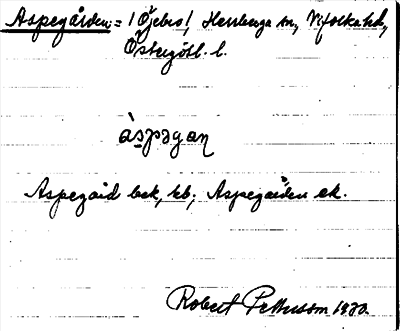 Aspegården := ! Öjebro!, Herrberga sn, Vifolka hd,
Östergötl. l.
àspəgan
Aspegård bek, kb; Aspegården ek.
Robert Pettersson 1930.